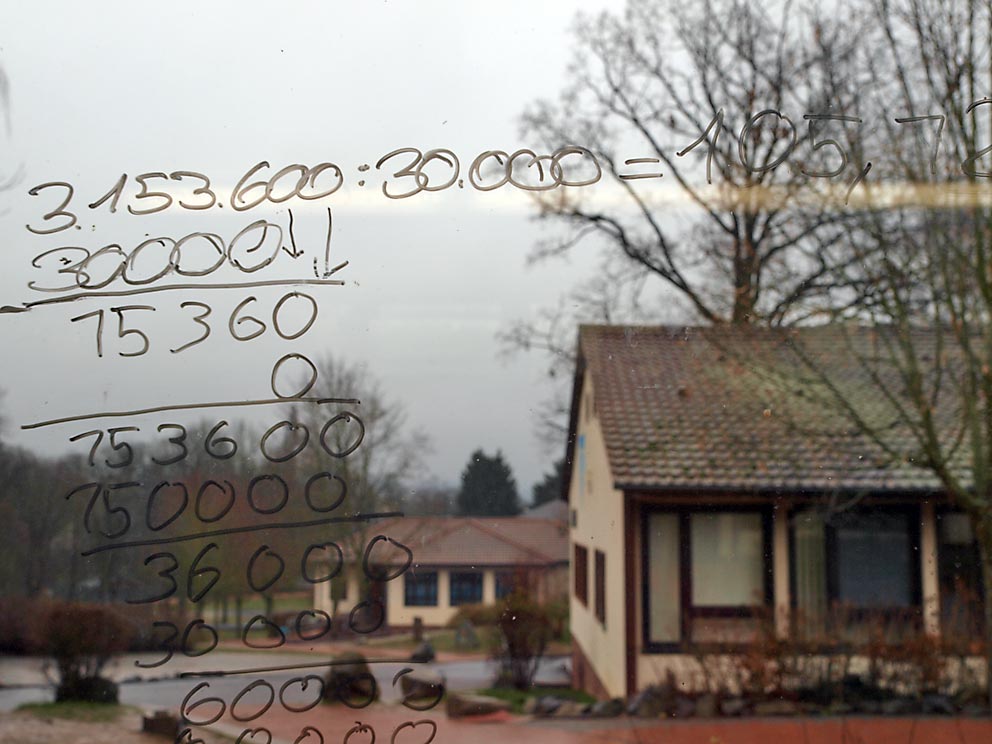 3.153.600:30.000 = 105,12
30000↓↓
15360
0
153600
150000
36000
30000
60000